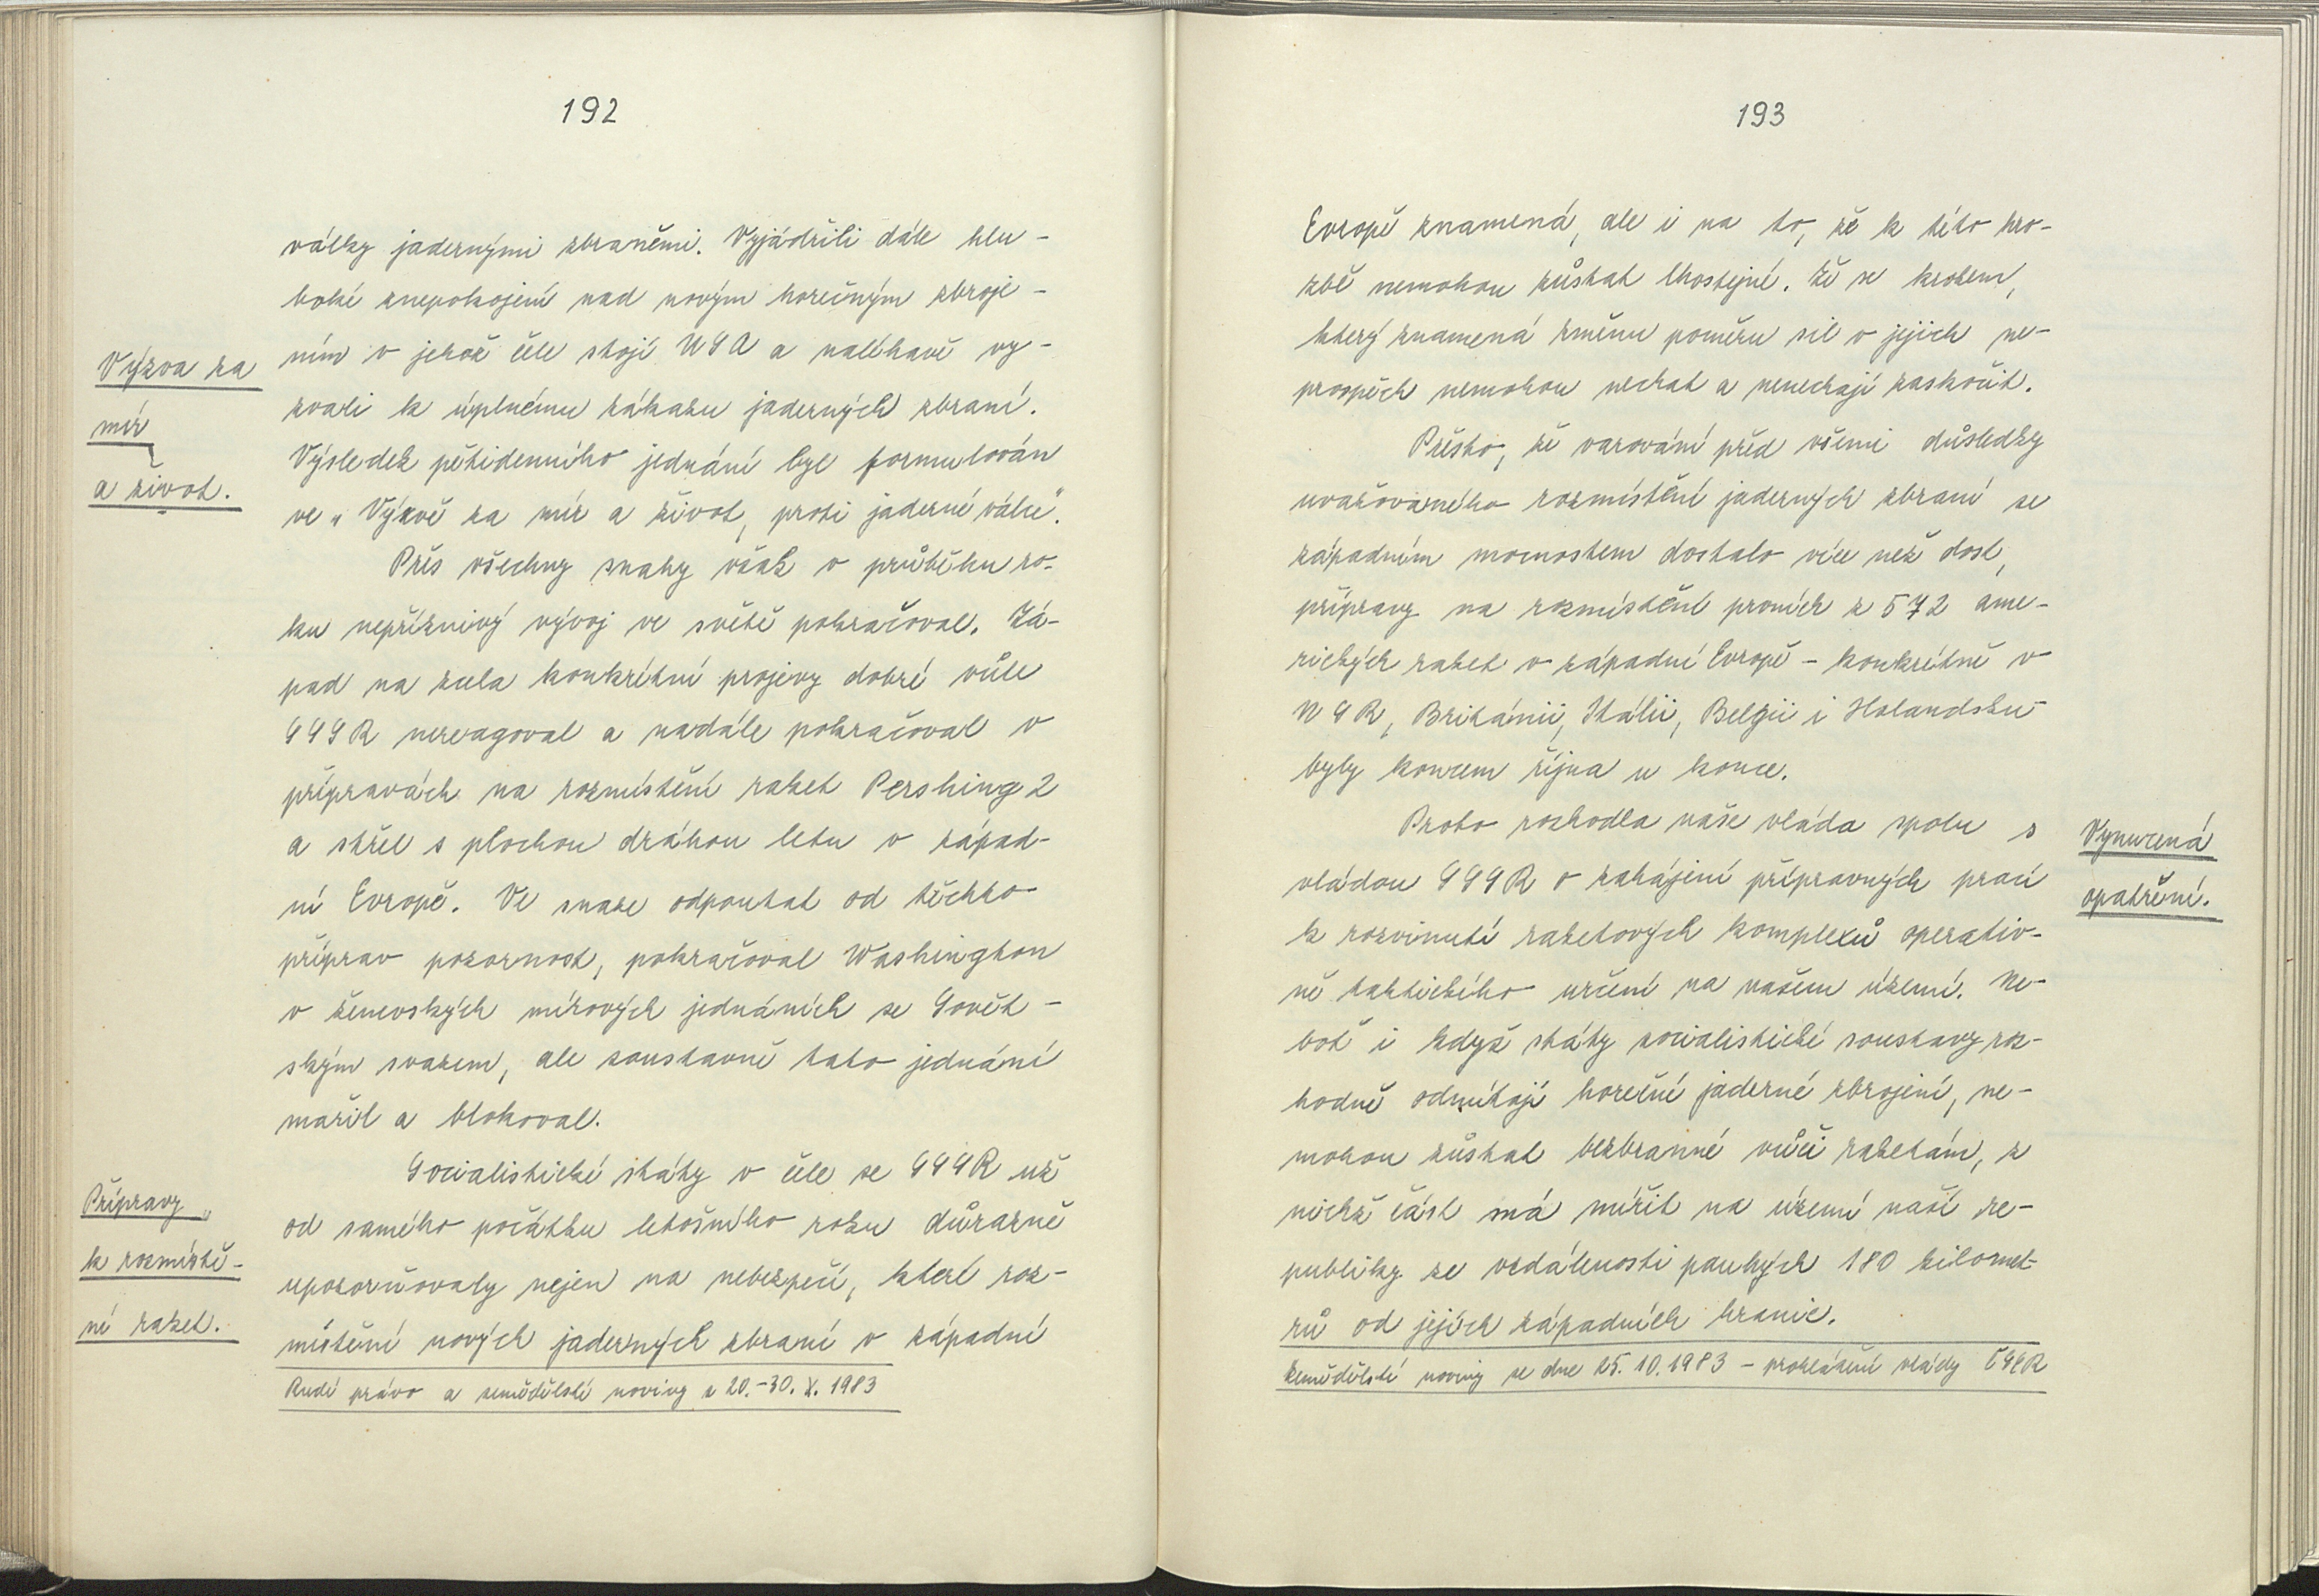 192
války jadernými zbraněmi. Vyjádřili dále hlu-
boké znepokojení nad novým horečným zbroje-
ním v jehož čele stojí USA a naléhavě vy-
zvali k úplnému zákazu jaderných zbraní.
Výsledek pětidenního jednání byl formulován
ve „Výzvě za mír a život, proti jaderné válce".
Výzva za
mír
a život.
Přes všechny snahy však v průběhu ro-
ku nepříznivý vývoj ve světě pokračoval. Zá-
pad na zcela konkrétní projevy dobré vůle
SSSR nereagoval a nadále pokračoval v
přípravách na rozmístění raket Pershing 2
a střel s plochou dráhou letu v západ-
ní Evropě. Ve snaze odpoutat od těchto
příprav pozornost, pokračoval Washington
v ženevských mírových jednáních se Sovět-
ským svazem, ale soustavně tato jednání
mařil a blokoval.
Socialistické státy v čele se SSSR už
od samého počátku letošního roku důrazně
upozorňovaly nejen na nebezpečí, které roz-
místění nových jaderných zbraní v západní
Přípravy
k rozmístě-
ní raket.
Rudé právo a zemědělské noviny z 20.-30. X. 1983
193
Evropě znamená, ale i na to, že k této hro-
zbě nemohou zůstat lhostejné. Že se krokem,
který znamená změnu poměru sil v jejich ne-
prospěch nemohou nechat a nenechají zaskočit.
Přesto, že varování před všemi důsledky
uvažovaného rozmístění jaderných zbraní se
západním mocnostem dostalo více než dost,
přípravy na rozmístění prvních z 572 ame-
rických raket v západní Evropě - konkrétně v
NSR, Británii, Itálii, Belgii i Holandsku -
byly koncem října u konce.
Proto rozhodla naše vláda spolu s
vládou SSSR o zahájení přípravných prací
k rozvinutí raketových komplexů operativ-
ně taktického určení na našem území. Ne-
boť i když státy socialistické soustavy roz-
hodně odmítají horečné jaderné zbrojení, ne-
mohou zůstat bezbranné vůči raketám, z
nichž část má mířit na území naší re-
publiky ze vzdálenosti pouhých 180 kilomet-
rů od jejích západních hranic.
Vynucená
opatření.
Zemědělské noviny ze dne 25.10.1983 - prohlášení vlády ČSSR